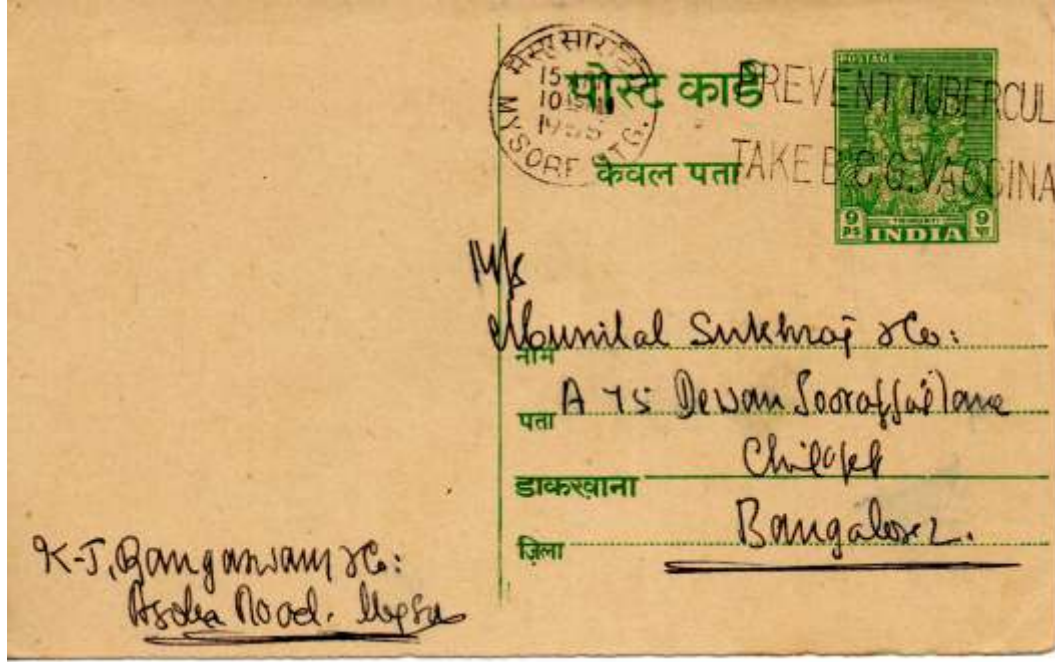 मैसूर
15
10
1955
MYSORE R.T.G.
पोस्ट कार्ड
केवल पता
PREVENT TUBERCUL
TAKE B.C.G. VACCINA
POSTAGE
TRIMURTI
9 ps INDIA 9 पा
M/s
Munilal Sukhraj & Co:
नाम
पता A 75 Dewan Sooraffai lane
डाकखाना
ज़िला Bangalore 2.
K-J, Rangaswamy & Co:
Asoka Road.